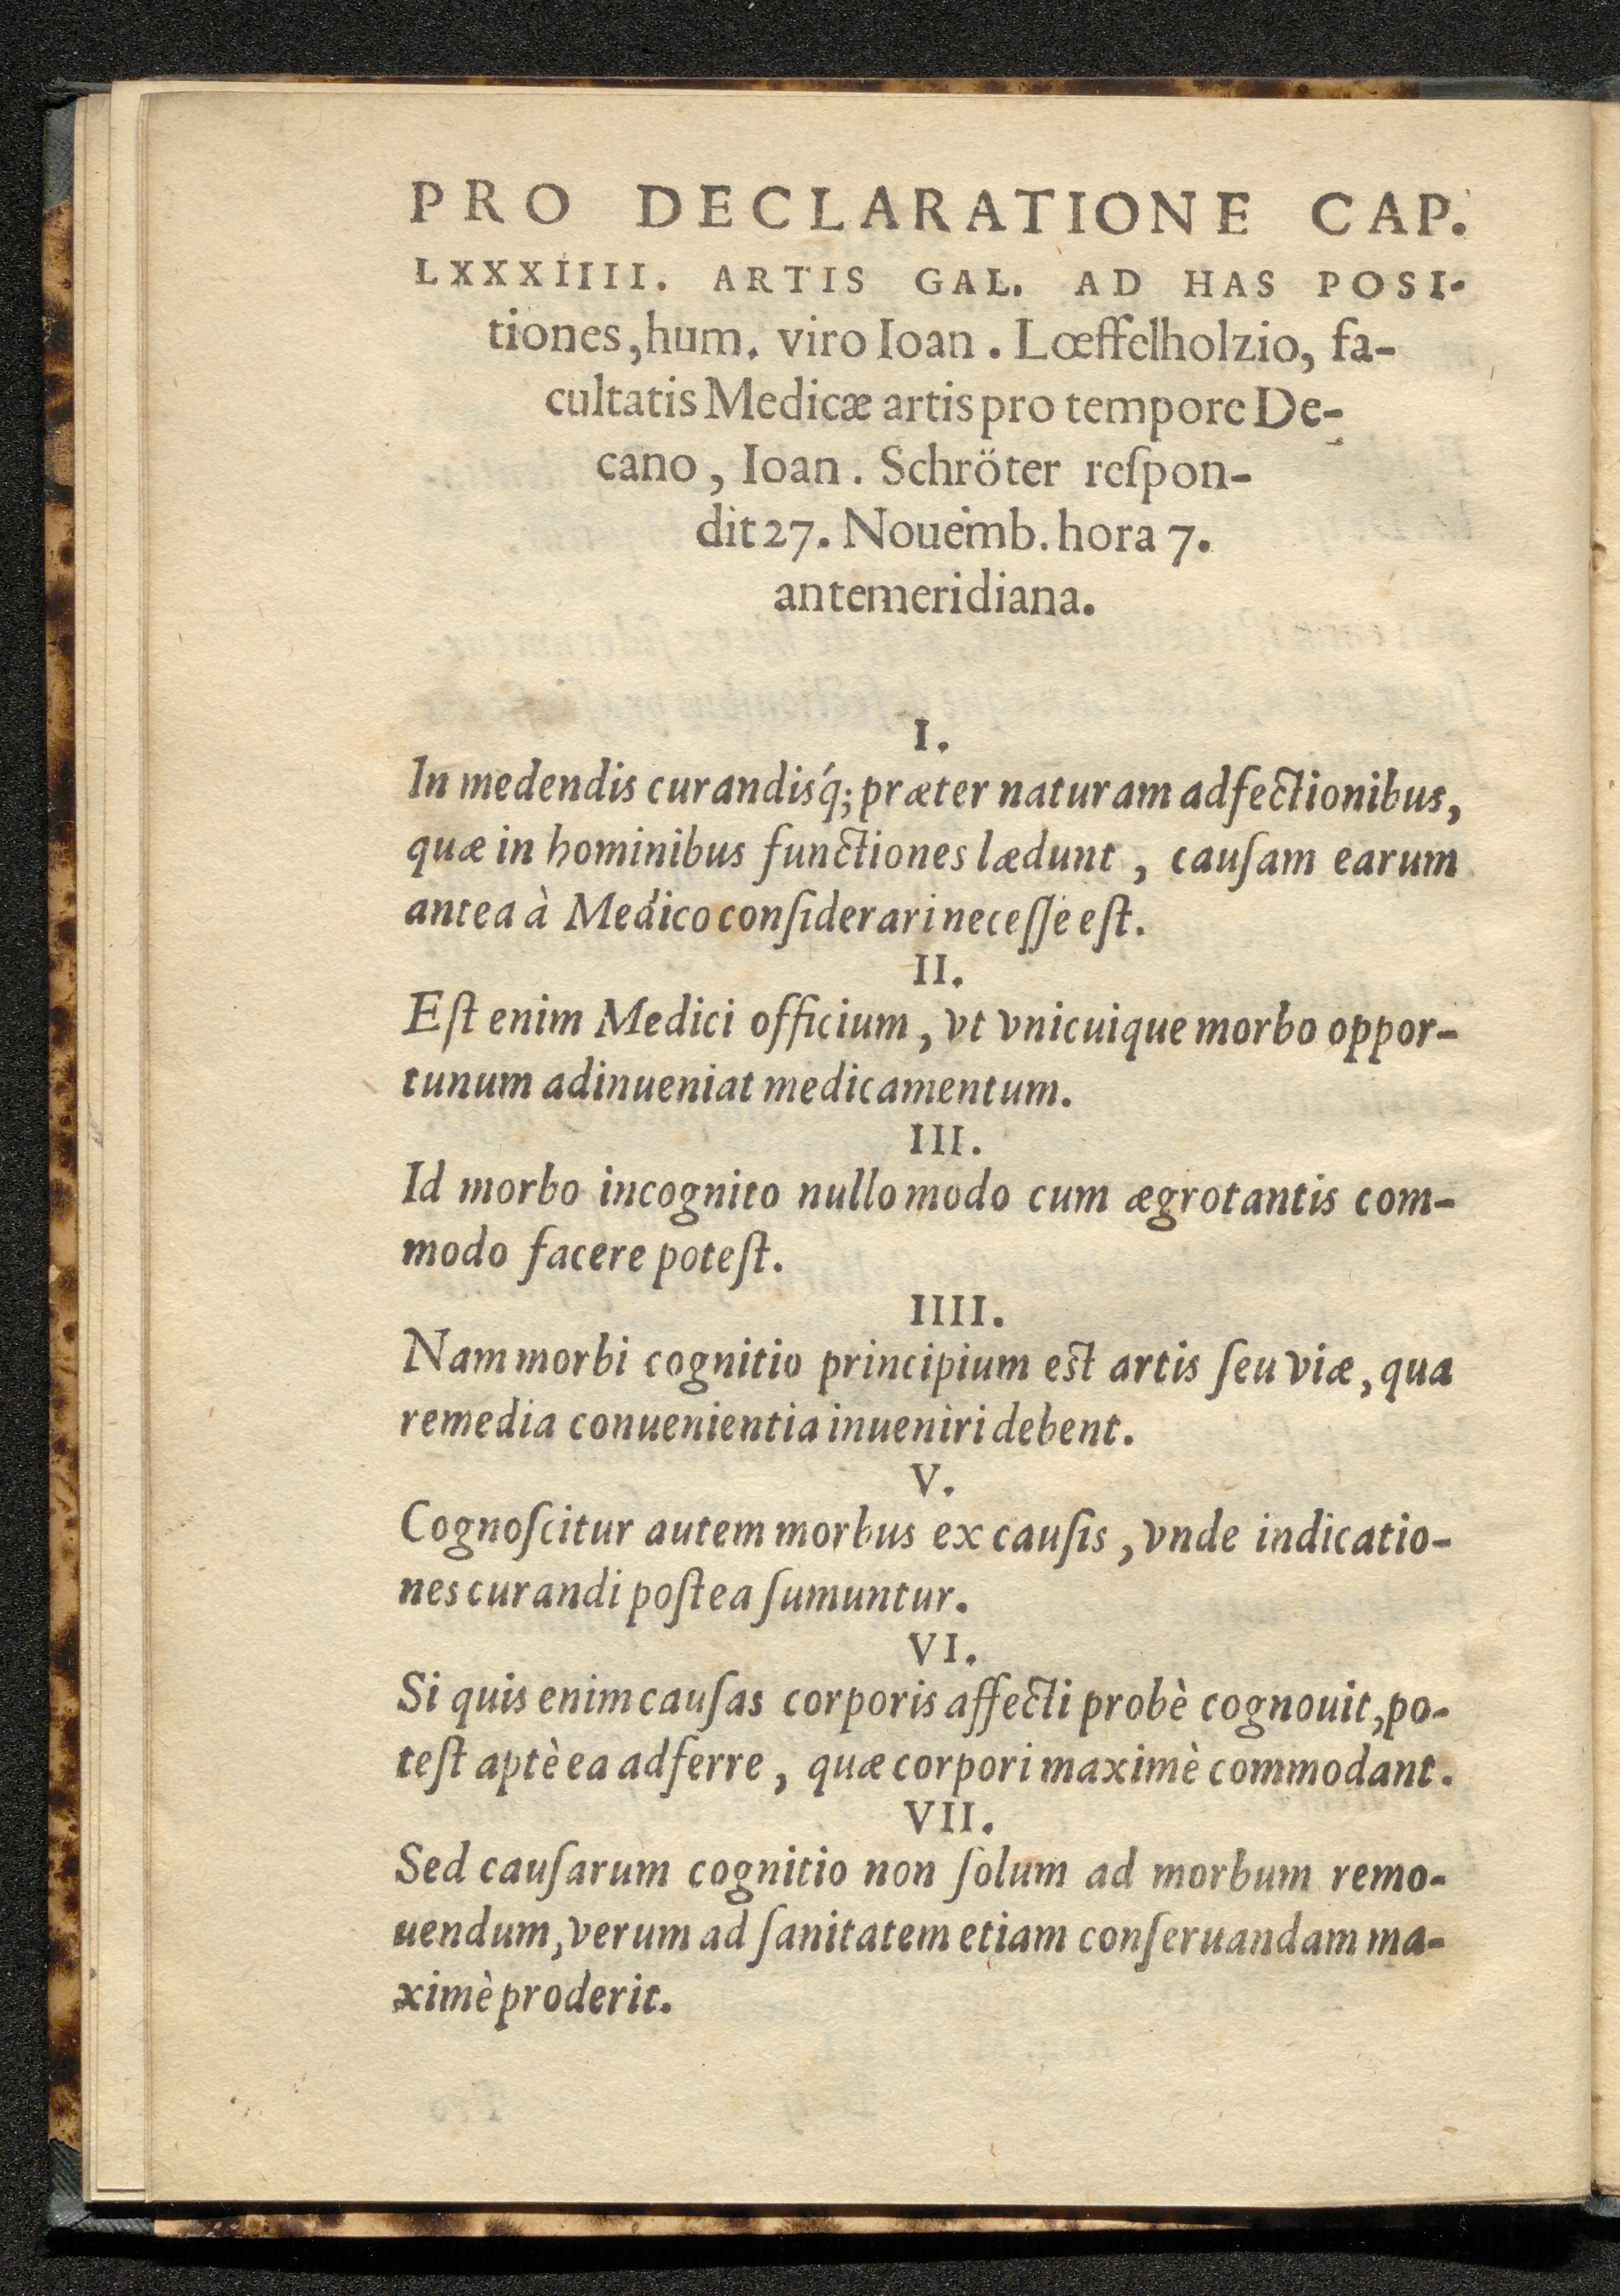 PRO DECLARATIONE CAP.
LXXXIIII. ARTIS GAL. AD HAS POSI-
tiones, hum. viro Ioan. Lœffelholzio, fa-
cultatis Medicæ artis pro tempore De-
cano, Ioan. Schröter reſpon-
dit 27. Nouemb. hora 7.
antemeridiana.
I.
In medendis curandisq́; præter naturam adfectionibus,
quæ in hominibus functiones lædunt, cauſam earum
antea à Medico conſiderari neceſſe eſt.
II.
Eſt enim Medici officium, vt vnicuique morbo oppor-
tunum adinueniat medicamentum.
III.
Id morbo incognito nullo modo cum ægrotantis com-
modo facere poteſt.
IIII.
Nam morbi cognitio principium est artis ſeu viæ, qua
remedia conuenientia inueniri debent.
V.
Cognoſcitur autem morbus ex cauſis, vnde indicatio-
nes curandi poſtea ſumuntur.
VI.
Si quis enim cauſas corporis affecti probè cognouit, po-
teſt aptè ea adferre, quæ corpori maximè commodant.
VII.
Sed cauſarum cognitio non ſolum ad morbum remo-
uendum, verum ad ſanitatem etiam conſeruandam ma-
ximè proderit.